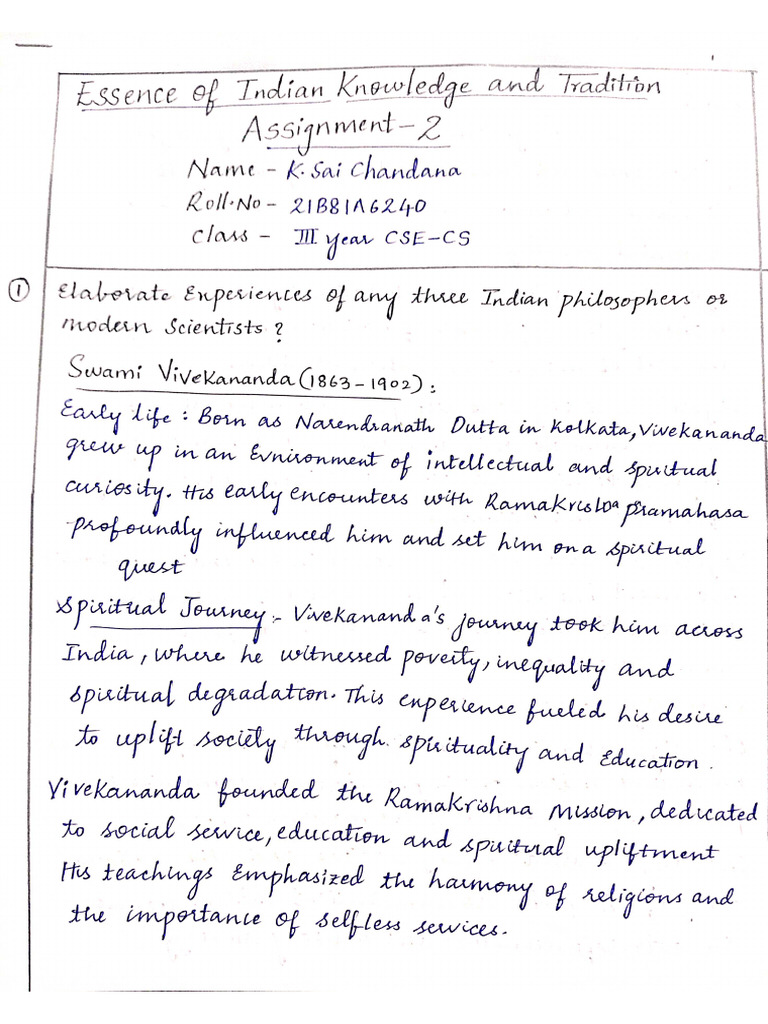 Essence of Indian Knowledge and Tradition
Assignment-2
Name - K. Sai Chandana
Roll.No - 21B81A6240
Class - III year CSE-CS
① Elaborate Experiences of any three Indian philosophers or
modern Scientists?
Swami Vivekananda (1863-1902):
Early life: Born as Narendranath Dutta in Kolkata, Vivekananda
grew up in an Evnironment of intellectual and spiritual
curiosity. His early encounters with Ramakrishna pramahasa
profoundly influenced him and set him on a spiritual
quest
Spiritual Journey:- Vivekananda's journey took him across
India, where he witnessed poverty, inequality and
spiritual degradation. This experience fueled his desire
to uplift society through spirituality and Education.
Vivekananda founded the Ramakrishna Mission, dedicated
to social service, education and spiritural upliftment
His teachings Emphasized the harmony of religions and
the importance of selfless services.